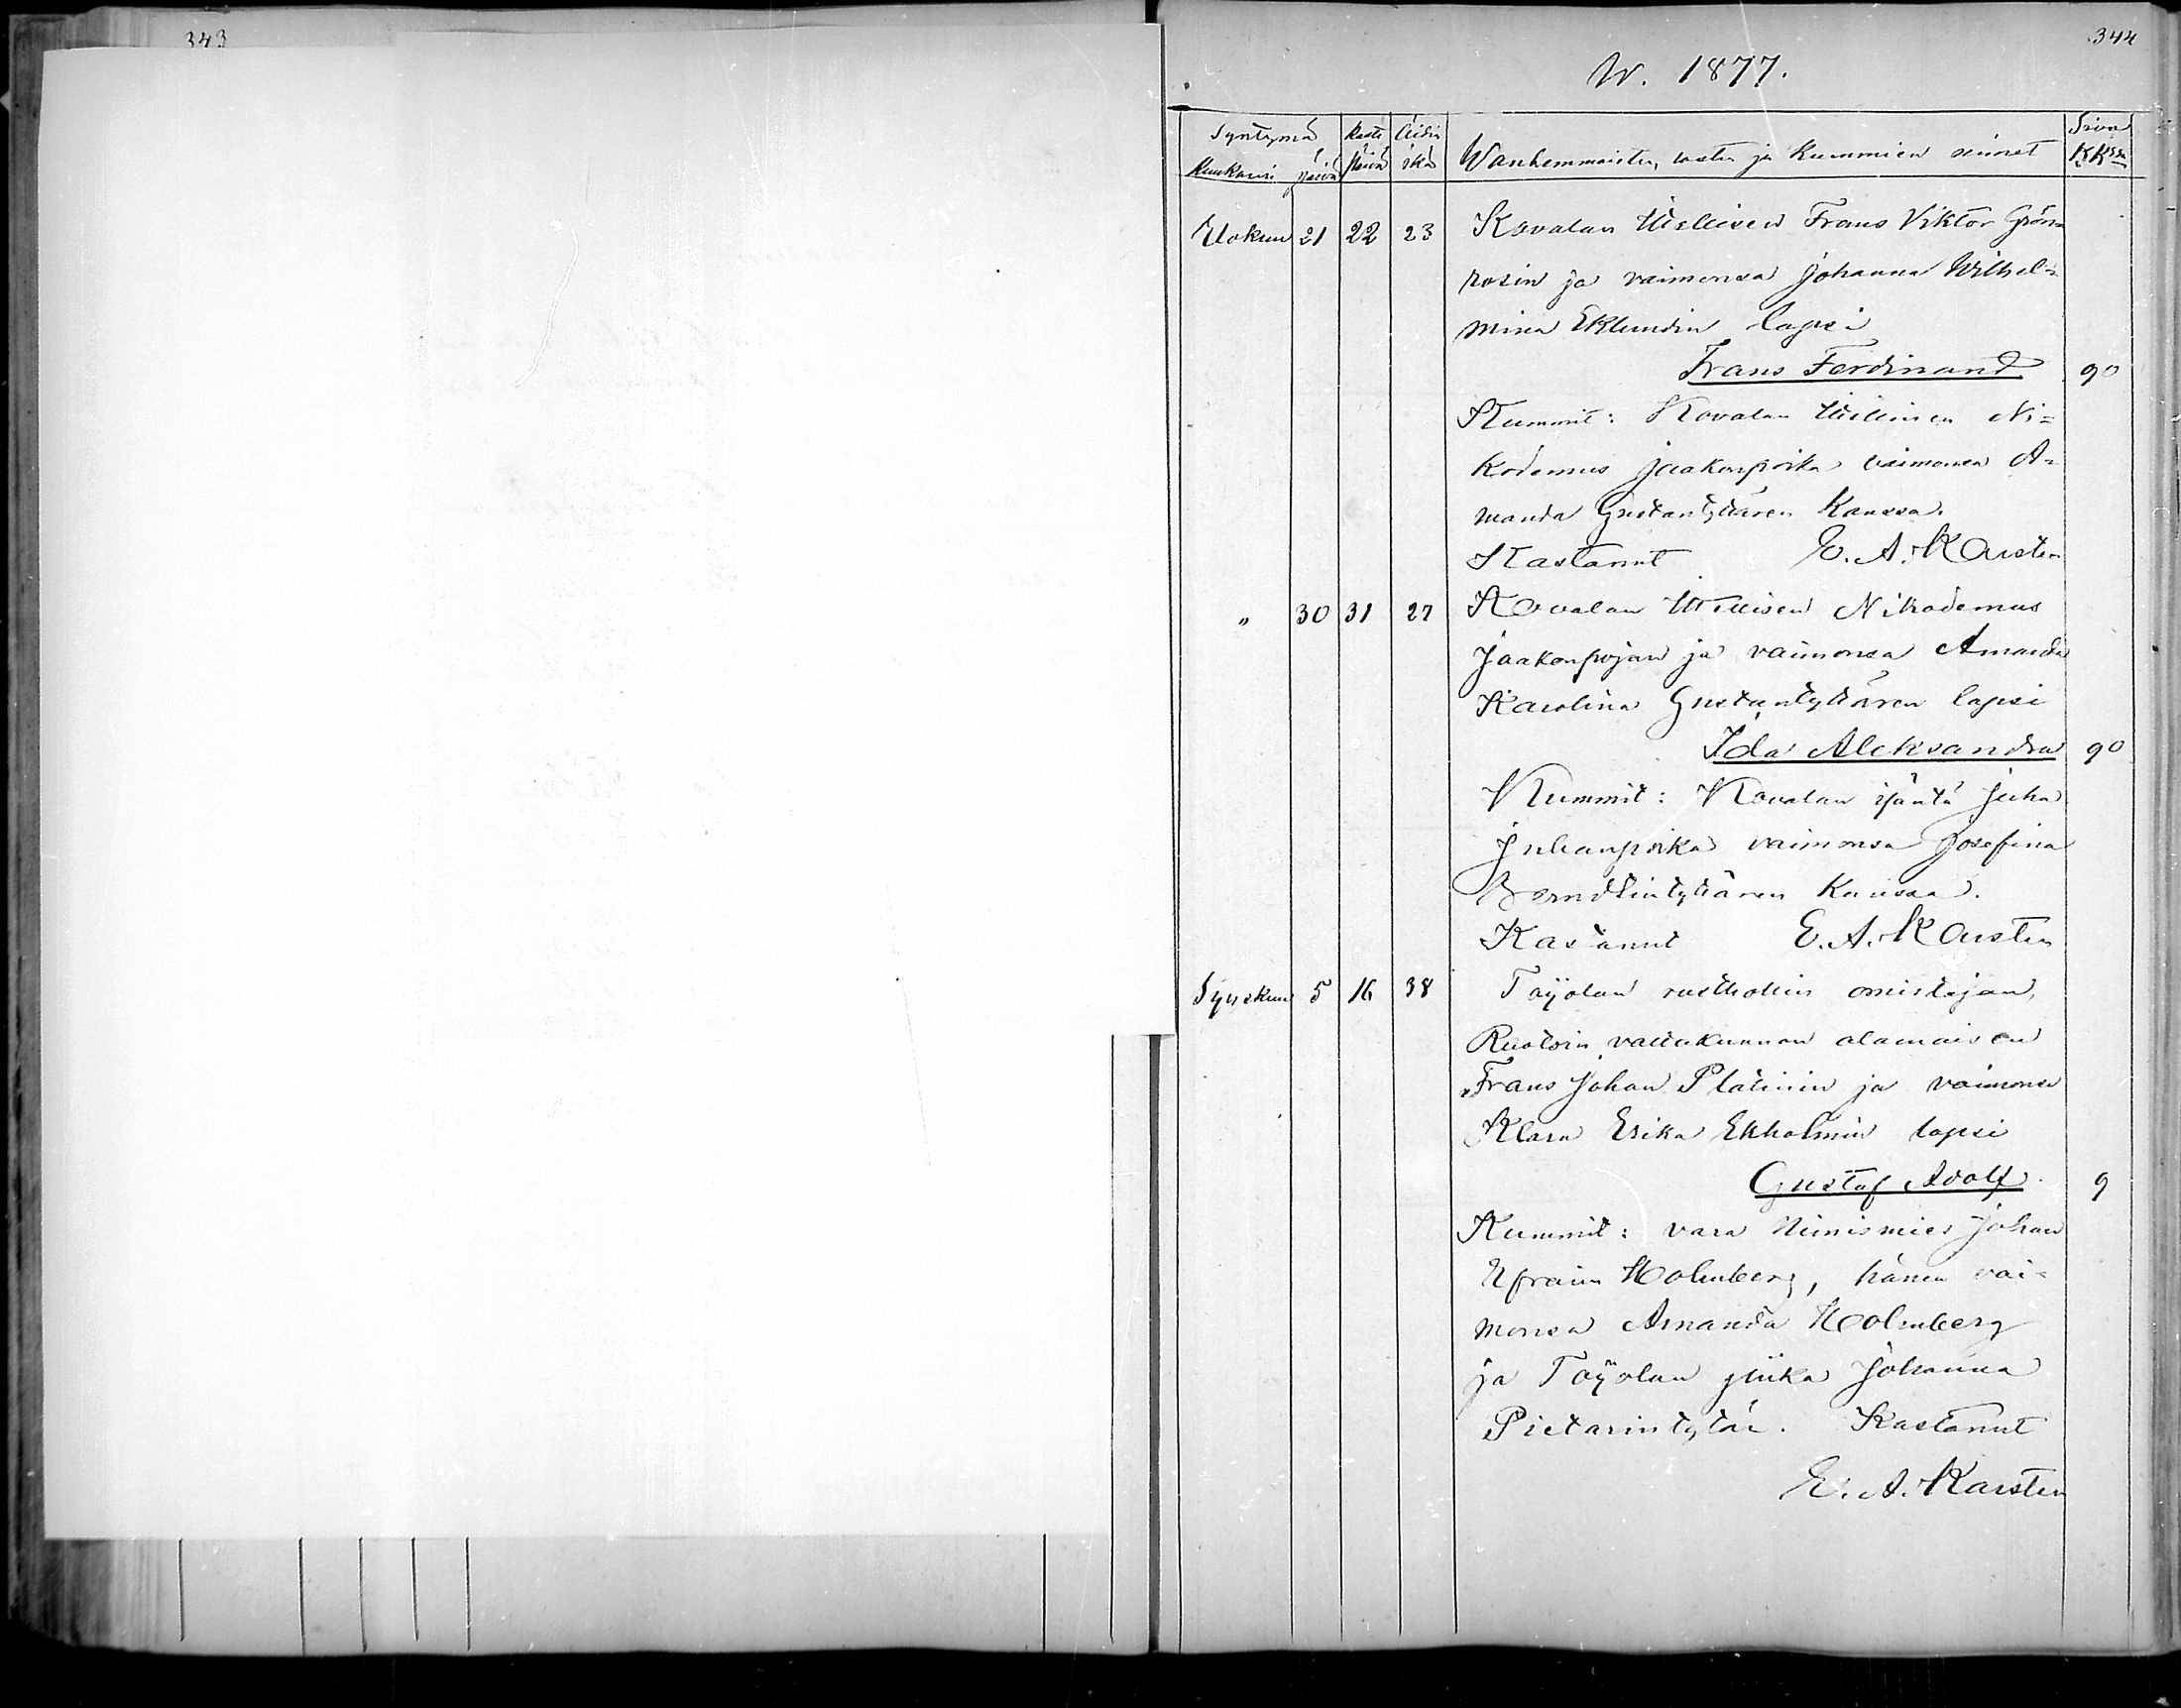 343
344
W. 1877.
Syntymä Kaste Äidin Sivu
Kuukausi päivä Päivä ikä Wanhemmaiten, lasten ja Kummien nimet KKssa
Elokuu 21 22 23 Kovalan Itsellisen Frans Viktor Grön-
rosin ja vaimonsa Johanna Wilhel-
mina Eklundin lapsi
Frans Ferdinand 90
Kummit: Kovalan Itsellinen Ni-
kodemus Jaakonpoika vaimonsa A-
manda Gustantyttären Kanssa.
Kastanut E. A. Karsten
" 30 31 27 Kovalan Itsellisen Nikodemus
Jaakonpojan ja vaimonsa Amanda
Karolina Gustantyttären lapsi
Ida Aleksandra 90
Kummit: Kovalan isäntä Juha
Juhanpoika vaimonsa Josefina
Berndtintyttären Kanssa.
Kastanut E. A. Karsten
Syyskuu 5 16 38 Töyölan rusthollin omistajan,
Ruotsin valtakunnan alamaisen
Frans Johan Platinin ja vaimonsa
Klara Erika Ekholmin lapsi
Gustaf Adolf. 9
Kummit: vara Nimismies Johan
Efraim Holmberg, hänen vai-
monsa Amanda Holmberg
ja Töyölan piika Johanna
Pietarintytär. Kastanut
E. A. Karsten